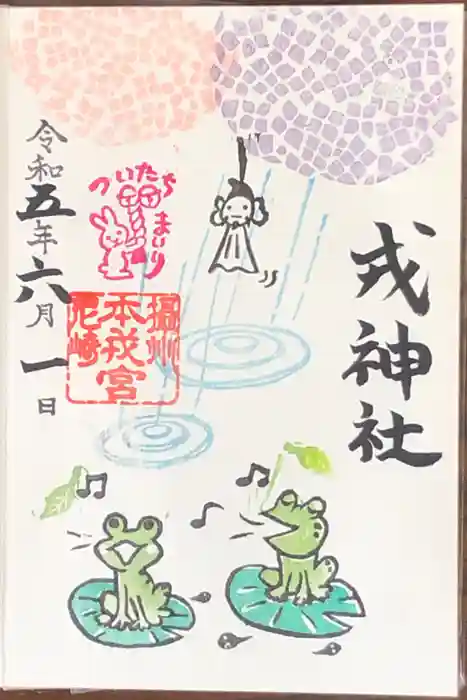 戎神社
ついたち
まいり
摂州
本戎宮
尼崎
令和五年六月一日